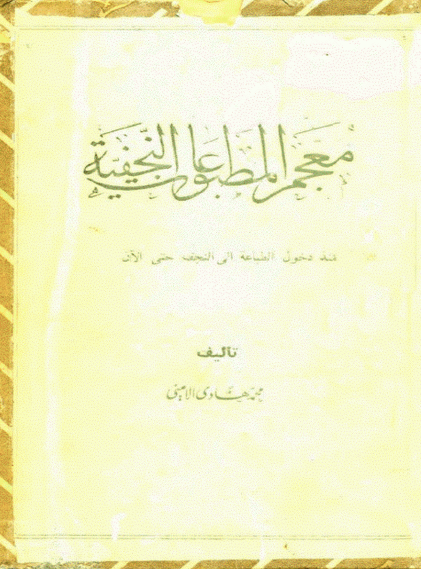 معجم المطبوعات النجفية
منذ دخول الطباعة الى النجف حتى الآن
تأليف
محمد هادي الاميني